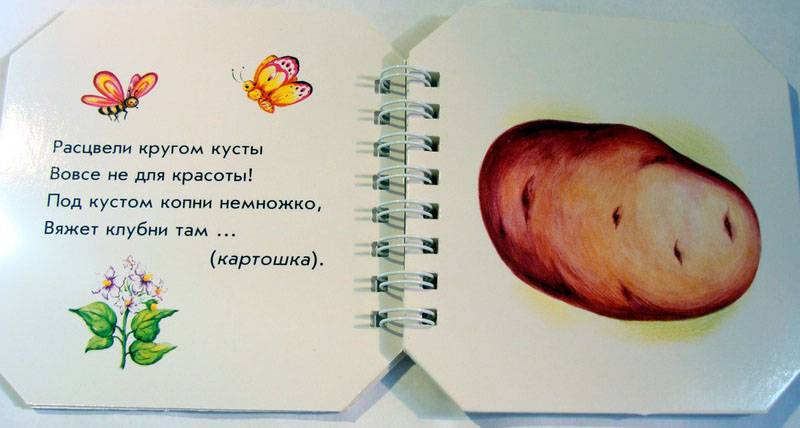 Расцвели кругом кусты
Вовсе не для красоты!
Под кустом копни немножко,
Вяжет клубни там ...
(картошка).